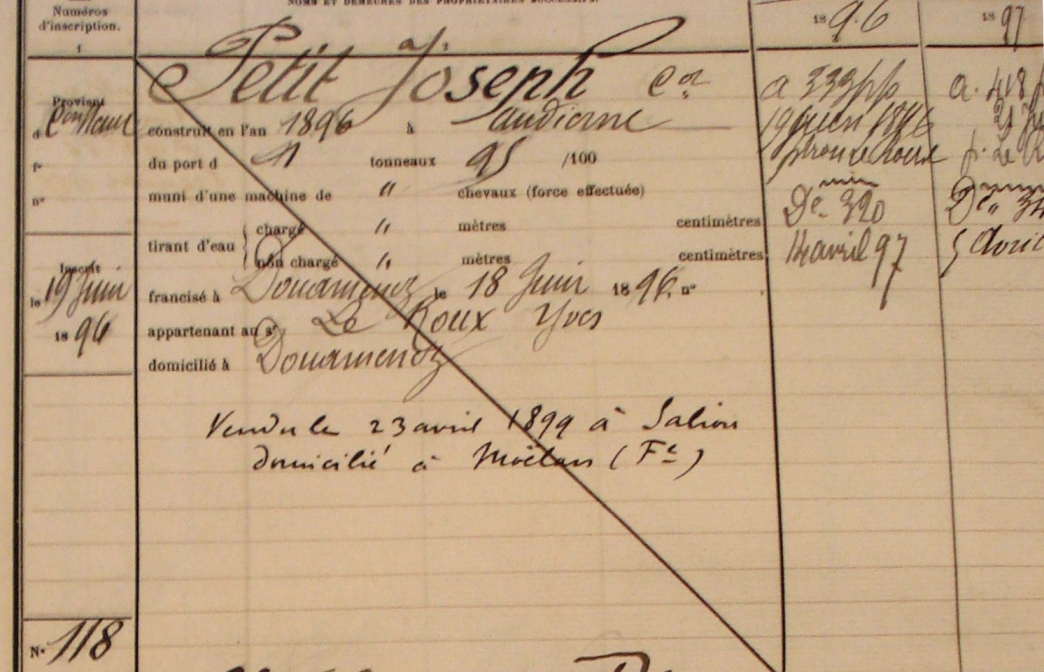 NOMS ET DEMEURES DES PROPRIÉTAIRES SUCCESSIFS.
Numéros
d'inscription.
1
1896
1897
Petit Joseph
Provient
d
f°
n°
construit en l'an 1896 à audierne
du port d 11 tonneaux 95 /100
muni d'une machine de " chevaux (force effectuée)
tirant d'eau
chargé " mètres centimètres
non chargé " mètres centimètres
Inscrit
le 19 Juin
1896
francisé à Douarnenez le 18 Juin 1896 n°
appartenant au sr Le Roux Yves
domicilié à Douarnenez
Vendu le 23 avril 1899 à Salion
domicilié à Moëlan (Fe)
19 juin 1896
De 320
14 avril 97
5 avril
N° 118